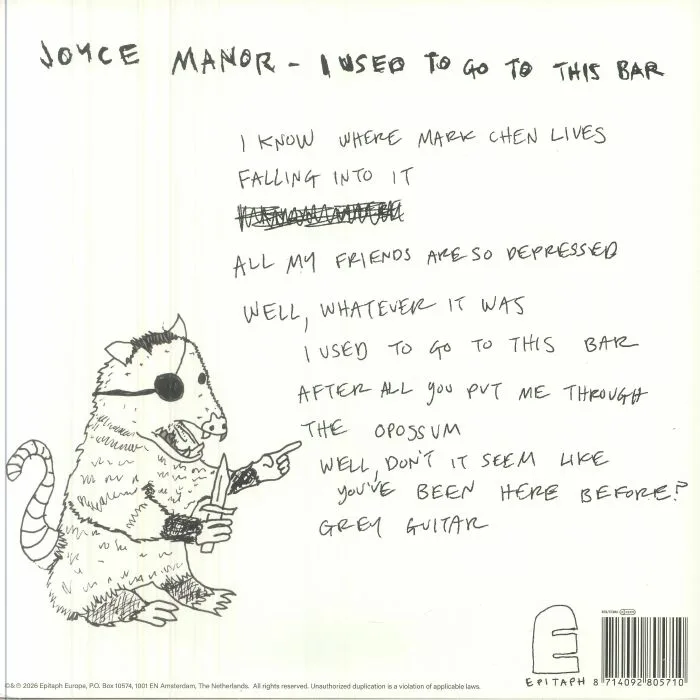 JOYCE MANOR - I USED TO GO TO THIS BAR
I KNOW WHERE MARK CHEN LIVES
FALLING INTO IT
ALL MY FRIENDS ARE SO DEPRESSED
WELL, WHATEVER IT WAS
I USED TO GO TO THIS BAR
AFTER ALL YOU PUT ME THROUGH
THE OPOSSUM
WELL, DON'T IT SEEM LIKE
YOU'VE BEEN HERE BEFORE?
GREY GUITAR
E
EPITAPH
8 714092 805710
©&℗ 2026 Epitaph Europe, P.O. Box 10574, 1001 EN Amsterdam, The Netherlands. All rights reserved. Unauthorized duplication is a violation of applicable laws.